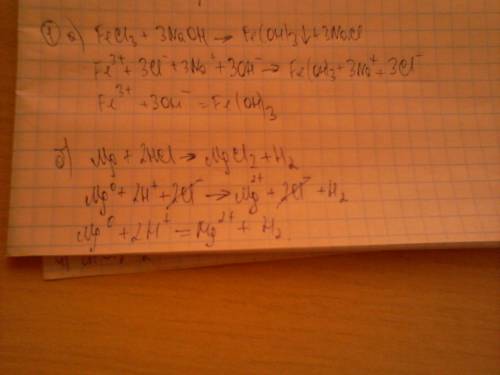 ① а) FeCl₃ + 3NaOH → Fe(OH)₃↓ + 3NaCl
Fe³⁺ + 3Cl⁻ + 3Na⁺ + 3OH⁻ → Fe(OH)₃ + 3Na⁺ + 3Cl⁻
Fe³⁺ + 3OH⁻ = Fe(OH)₃
б) Mg + 2HCl → MgCl₂ + H₂
Mg⁰ + 2H⁺ + 2Cl⁻ → Mg²⁺ + 2Cl⁻ + H₂
Mg⁰ + 2H⁺ = Mg²⁺ + H₂